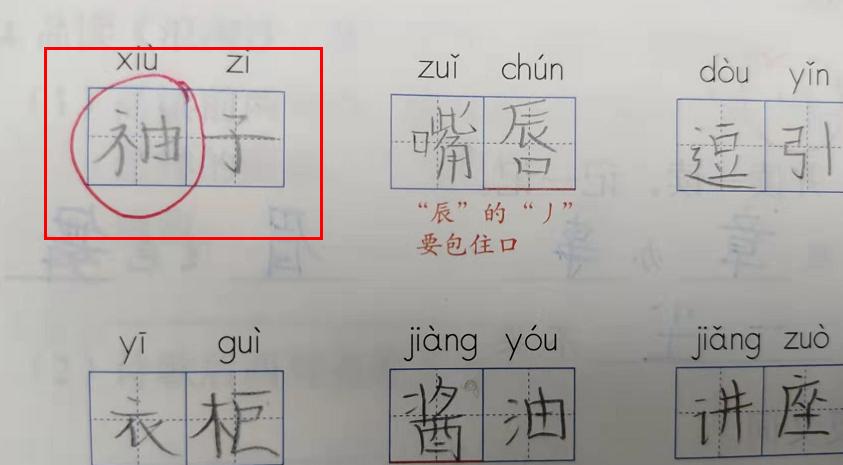 xiù zi zuǐ chún dòu yǐn
䄂子 嘴唇 逗引
“辰”的“丿”
要包住口
yī guì jiàng yóu jiǎng zuò
衣柜 酱油 讲座